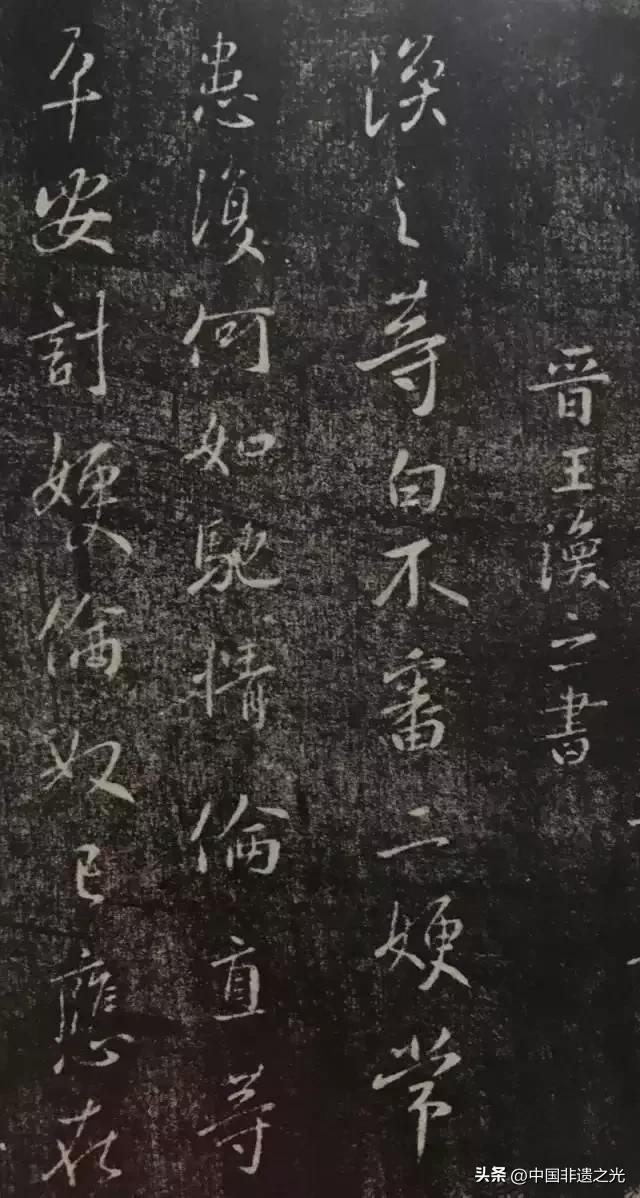 晋王渙之書
渙之等白不審二嫂常
患復何如馳情倫直等
平安計嫂倫奴已應在
头条 @中国非遗之光